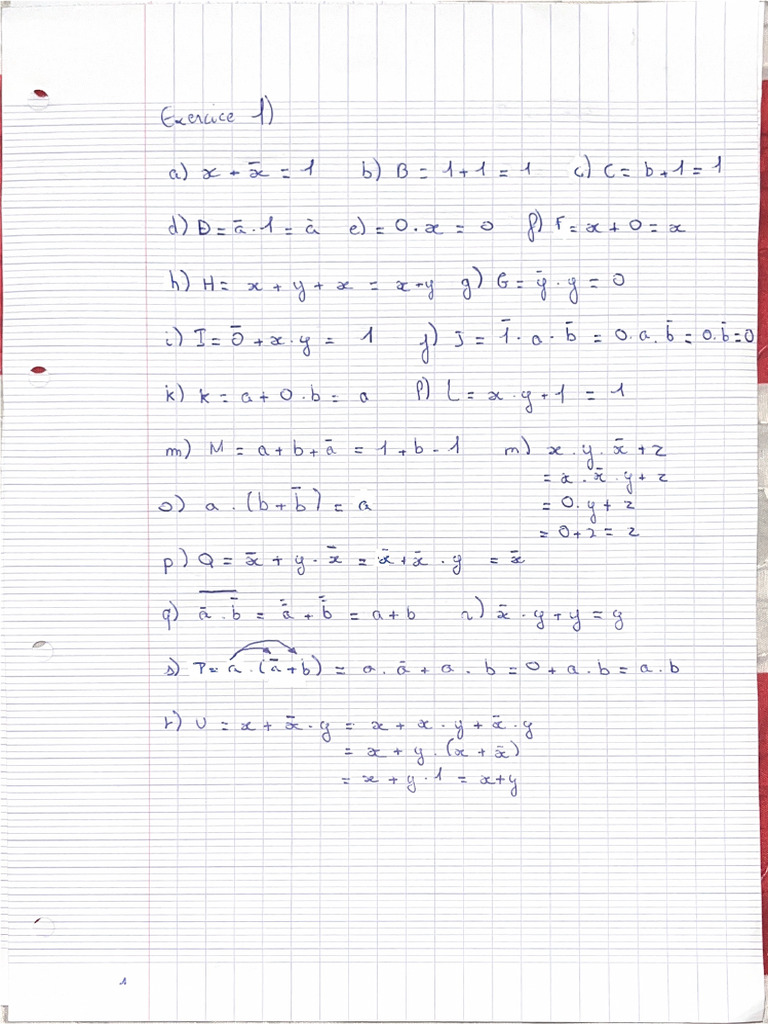 Exercice 1)
a) x + x̄ = 1 b) B = 1 + 1 = 1 c) C = b + 1 = 1
d) D = ā . 1 = ā e) = 0 . x = 0 f) F = x + 0 = x
h) H = x + y + x = x + y g) G = ȳ . y = 0
i) I = 0̄ + x . y = 1 j) J = 1̄ . a . b̄ = 0 . a . b̄ = 0 . b̄ = 0
k) K = a + 0 . b = a l) L = x . y + 1 = 1
m) M = a + b + ā = 1 + b - 1 m) x . y . x̄ + z
= x . x̄ . y + z
o) a . (b + b̄) = a = 0 . y + z
= 0 + z = z
p) Q = x̄ + y . x̄ = x̄ + x̄ . y = x̄
q) ā . b̄̅ = ā̄ + b̄̄ = a + b r) x̄ . y + y = y
s) T = a . (ā + b) = a . ā + a . b = 0 + a . b = a . b
r) U = x + x̄ . y = x + x . y + x̄ . y
= x + y . (x + x̄)
= x + y . 1 = x + y
1